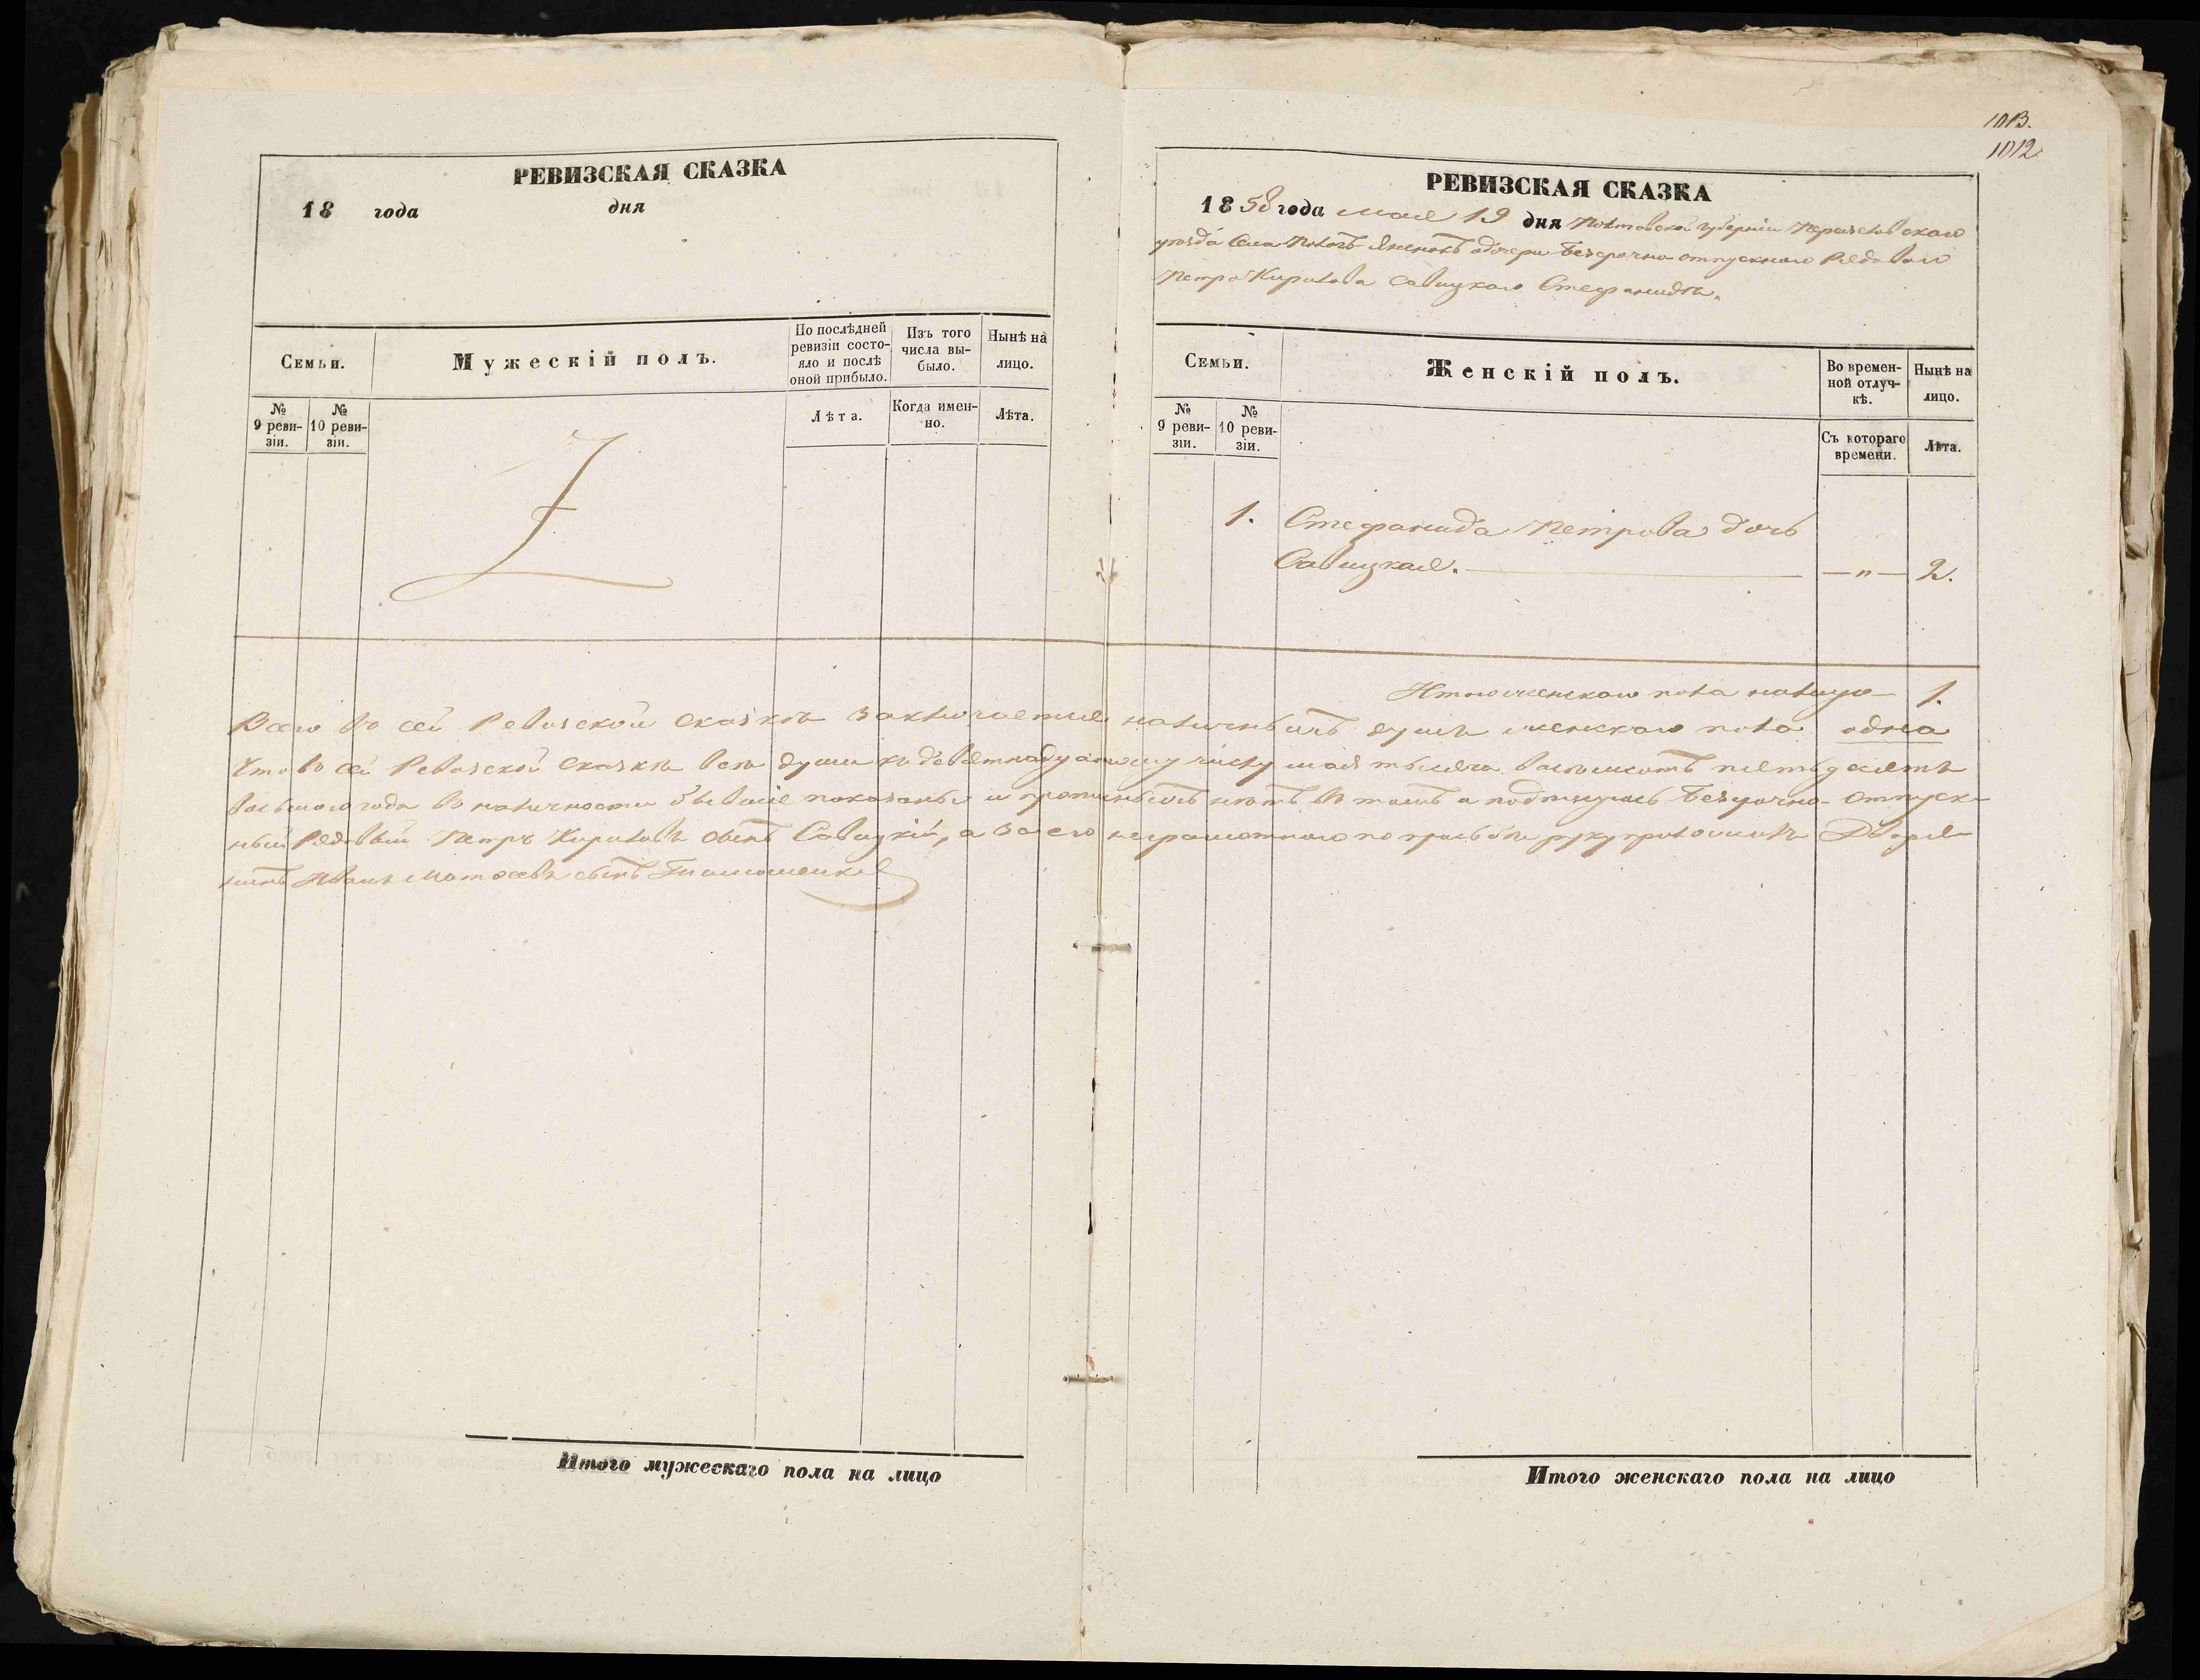 РЕВИЗСКАЯ СКАЗКА
18 года дня
Семьи.
Мужескій полъ.
По послѣдней
ревизіи состо-
яло и послѣ
оной прибыло.
Изъ того
числа вы-
было.
Нынѣ на
лицо.
№
9 реви-
зіи.
№
10 реви-
зіи.
Лѣта.
Когда имен-
но.
Лѣта.
1013.
1012
РЕВИЗСКАЯ СКАЗКА
18 58 года мая 19 дня Полтавской губерніи Переяславскаго
уѣзда Села дочери Безсрочно-отпускнаго Рядоваго
Петра Кирилова Савицкаго Стефаниды.
Семьи.
Женскій полъ.
Во времен-
ной отлуч-
кѣ.
Нынѣ на
лицо.
№
9 реви-
зіи.
№
10 реви-
зіи.
Съ котораго
времени.
Лѣта.
1. Стефанида Петрова дочь
Савицкая. — — „ — 2.
Итого женскаго пола налицо — 1.
Всего во сей Ревизской сказкѣ заключается наличныхъ душъ женскаго пола одна
Что во сей Ревизской сказкѣ всѣ души къ девятнадцатому числу мая тысяча восемсотъ пятьдесятъ
восьмого года во наличности бывшіе показаны и прописныхъ нѣтъ въ томъ и подпишусь Безсрочно-отпуск-
ный Рядовый Петръ Кириловъ сынъ Савицкій, а за его неграмотнаго по прозьбѣ руку приложилъ Дворя-
нинъ Иванъ сынъ
Итого мужескаго пола на лицо
Итого женскаго пола на лицо